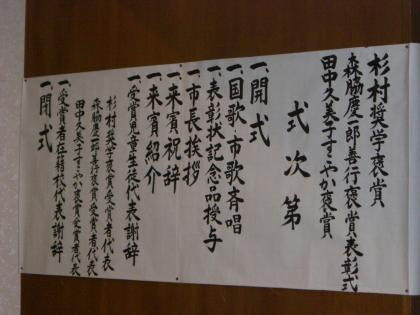 杉村奨学褒賞
森脇慶一郎善行褒賞 表彰式
田中久美子すこやか褒賞
式次第
一、開式
一、国歌・市歌斉唱
一、表彰状記念品授与
一、市長挨拶
一、来賓祝辞
一、来賓紹介
一、受賞児童生徒代表謝辞
杉村奨学褒賞受賞者代表
森脇慶一郎善行褒賞受賞者代表
田中久美子すこやか褒賞受賞者代表
一、受賞者在籍校代表謝辞
一、閉式